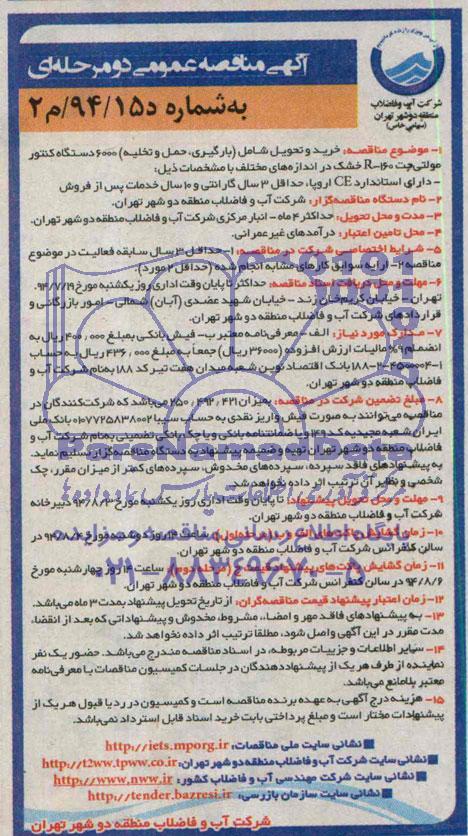 آگهی مناقصه عمومی دو مرحله‌ای
به شماره د۹۴/۱۵/م۲
شرکت آب و فاضلاب
منطقه دو شهر تهران
(سهامی خاص)
۱- موضوع مناقصه: خرید و تحویل شامل (بارگیری، حمل و تخلیه) ۶۰۰۰ دستگاه کنتور
مولتی‌جت R-۱۶۰ خشک در اندازه‌های مختلف با مشخصات ذیل:
- دارای استاندارد CE اروپا، حداقل ۳ سال گارانتی و ۱۰ سال خدمات پس از فروش
۲- نام دستگاه مناقصه‌گزار: شرکت آب و فاضلاب منطقه دو شهر تهران.
۳- مدت و محل تحویل: حداکثر ۴ ماه - انبار مرکزی شرکت آب و فاضلاب منطقه دو شهر تهران.
۴- محل تامین اعتبار: درآمدهای غیرعمرانی.
۵- شرایط اختصاصی شرکت در مناقصه: ۱- حداقل ۳ سال سابقه فعالیت در موضوع
مناقصه ۲- ارایه سوابق کارهای مشابه انجام شده (حداقل ۲ مورد).
۶- مهلت و محل دریافت اسناد مناقصه: حداکثر تا پایان وقت اداری روز یکشنبه مورخ ۹۴/۷/۱۹
تهران - خیابان کریم‌خان زند - خیابان شهید عضدی (آبان) شمالی - امور بازرگانی و
قراردادهای شرکت آب و فاضلاب منطقه دو شهر تهران.
۷- مدارک مورد نیاز: الف - معرفی‌نامه معتبر ب- فیش بانکی بمبلغ ۴۰۰,۰۰۰ ریال به
انضمام ۹% مالیات ارزش افزوده (۳۶۰۰۰ ریال) جمعاً به مبلغ ۴۳۶,۰۰۰ ریال به حساب
۱۸۸-۲-۴۵۰۰۰۰۴-۱ بانک اقتصاد نوین شعبه میدان هفت تیر کد ۱۸۸ به نام شرکت آب و
فاضلاب منطقه دو شهر تهران.
۸- مبلغ تضمین شرکت در مناقصه: بمیزان ۲۵۰,۴۹۲,۴۲۱ می‌باشد که شرکت‌کنندگان در
مناقصه می‌توانند به صورت فیش واریز نقدی به حساب سیبا ۰۱۰۷۷۲۵۸۳۸۰۰۲ بانک ملی
ایران شعبه مجیدیه کد ۱۴۹ و یا ضمانتنامه بانکی و یا چک بانکی تضمینی به نام شرکت آب و
فاضلاب منطقه دو شهر تهران تهیه و ضمیمه پیشنهاد به دستگاه مناقصه‌گزار تسلیم نماید.
به پیشنهادهای فاقد سپرده، سپرده‌های مخدوش، سپرده‌های کمتر از میزان مقرر، چک
شخصی و نظایر آن ترتیب اثر داده نخواهد شد.
۹- مهلت و محل تحویل پیشنهاد: تا پایان وقت اداری روز یکشنبه مورخ ۹۴/۸/۳ دبیرخانه
شرکت آب و فاضلاب منطقه دو شهر تهران.
۱۰- زمان گشایش پاکت‌های الف و ب (مرحله اول): ساعت ۱۴ روز دوشنبه مورخ ۹۴/۸/۴ در
سالن کنفرانس شرکت آب و فاضلاب منطقه دو شهر تهران.
۱۱- زمان گشایش پاکت‌های پیشنهاد قیمت (مرحله دوم): ساعت ۱۴ روز چهارشنبه مورخ
۹۴/۸/۶ در سالن کنفرانس شرکت آب و فاضلاب منطقه دو شهر تهران.
۱۲- زمان اعتبار پیشنهاد قیمت مناقصه‌گران: از تاریخ تحویل پیشنهاد بمدت ۳ ماه می‌باشد.
۱۳- به پیشنهادهای فاقد مهر و امضاء، مشروط، مخدوش و پیشنهاداتی که بعد از انقضاء
مدت مقرر در این آگهی واصل شود، مطلقا ترتیب اثر داده نخواهد شد.
۱۴- سایر اطلاعات و جزییات مربوطه، در اسناد مناقصه مندرج می‌باشد. حضور یک نفر
نماینده از طرف هر یک از پیشنهاددهندگان در جلسات کمیسیون مناقصات با معرفی‌نامه
معتبر بلامانع می‌باشد.
۱۵- هزینه درج آگهی به عهده برنده مناقصه است و کمیسیون در رد یا قبول هر یک از
پیشنهادات مختار است و مبلغ پرداختی بابت خرید اسناد قابل استرداد نمی‌باشد.
نشانی سایت ملی مناقصات: http://iets.mporg.ir
نشانی سایت شرکت آب و فاضلاب منطقه دو شهر تهران: http://t2ww.tpww.co.ir
نشانی سایت شرکت مهندسی آب و فاضلاب کشور: http://www.nww.ir
نشانی سایت سازمان بازرسی: http://tender.bazresi.ir
شرکت آب و فاضلاب منطقه دو شهر تهران
پایگاه اطلاع رسانی مناقصه و مزایده
۰۲۱-۸۸۳۴۹۶۷۰-۵